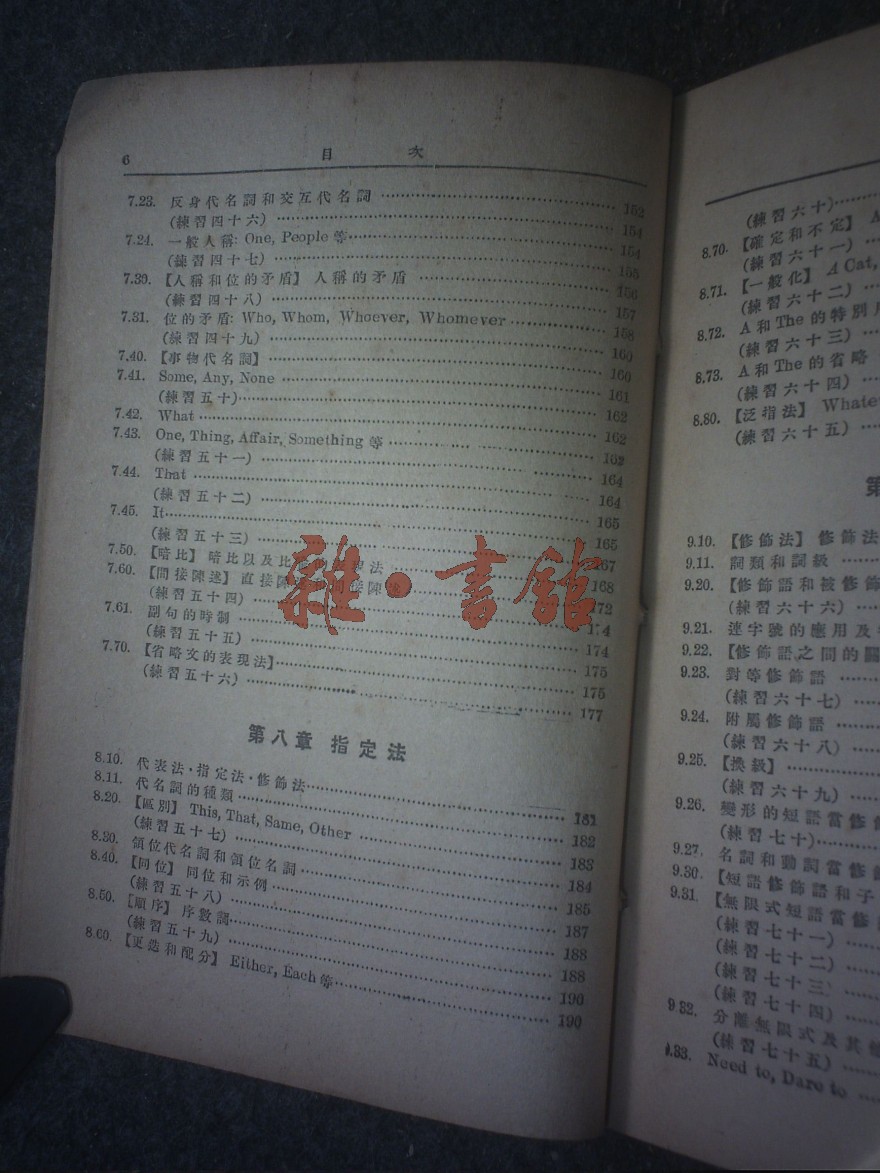 6 目次
7.23. 反身代名詞和交互代名詞 152
(練習四十六) 154
7.24. 一般人稱: One, People 等 154
(練習四十七) 155
7.30. 【人稱和位的矛盾】 人稱的矛盾 156
(練習四十八) 157
7.31. 位的矛盾: Who, Whom, Whoever, Whomever 158
(練習四十九) 160
7.40. 【事物代名詞】 160
7.41. Some, Any, None 161
(練習五十) 162
7.42. What 162
7.43. One, Thing, Affair, Something 等 162
(練習五十一) 164
7.44. That 164
(練習五十二) 165
7.45. It 165
(練習五十三) 167
7.50. 【暗比】 暗比以及比 法 168
7.60. 【間接陳述】 直接陳 接陳 172
(練習五十四) 174
7.61. 副句的時制 174
(練習五十五) 175
7.70. 【省略文的表現法】 175
(練習五十六) 177
第八章 指定法
8.10. 代表法·指定法·修飾法 181
8.11. 代名詞的種類 182
8.20. 【區別】 This, That, Same, Other 183
(練習五十七) 184
8.30. 領位代名詞和領位名詞 185
8.40. 【同位】 同位和示例 187
(練習五十八) 188
8.50. 【順序】 序數詞 188
(練習五十九) 190
8.60. 【更迭和配分】 Either, Each 等 190
雜·書舘
(練習六十)
8.70. 【確定和不定】 A
(練習六十一)
8.71. 【一般化】 A Cat,
(練習六十二)
8.72. A 和 The 的特別
(練習六十三)
8.73. A 和 The 的省略
(練習六十四)
8.80. 【泛指法】 Whate
(練習六十五)
第
9.10. 【修飾法】 修飾法
9.11. 詞類和詞級
9.20. 【修飾語和被修飾
(練習六十六)
9.21. 連字號的應用及
9.22. 【修飾語之間的關
9.23. 對等修飾語
(練習六十七)
9.24. 附屬修飾語
(練習六十八)
9.25. 【換級】
(練習六十九)
9.26. 變形的短語當修飾
(練習七十)
9.27. 名詞和動詞當修飾
9.30. 【短語修飾語和子
9.31. 【無限式短語當修
(練習七十一)
(練習七十二)
(練習七十三)
(練習七十四)
9.32. 分離無限式及其
(練習七十五)
9.33. Need to, Dare to